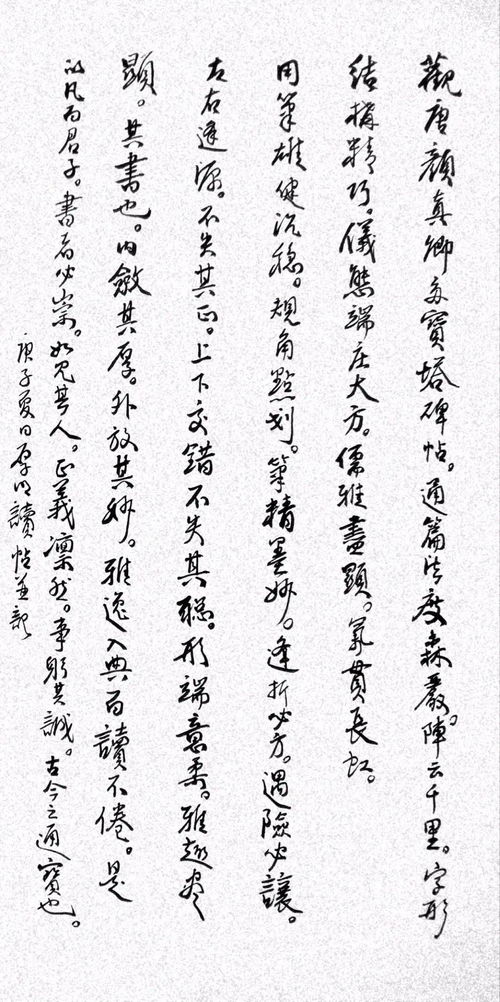 觀唐顏真卿多寶塔碑帖。通篇法度森嚴。陣云千里。字形
結構精巧。儀態端庄大方。儒雅盡顯。氣貫長虹。
用筆雄健沉穩。規角點划。筆精墨妙。逢折必方。遇險必讓。
左右逢源。不失其正。上下交錯不失其聡。形端意柔。雅趣尽
顯。其書也。内斂其厚。外放其妙。雅逸入典百讀不倦。是
以凡为君子。書者必崇。如見其人。正義凛然。事躬其誠。古今之通寶也。
庚子夏日厚 讀帖並記